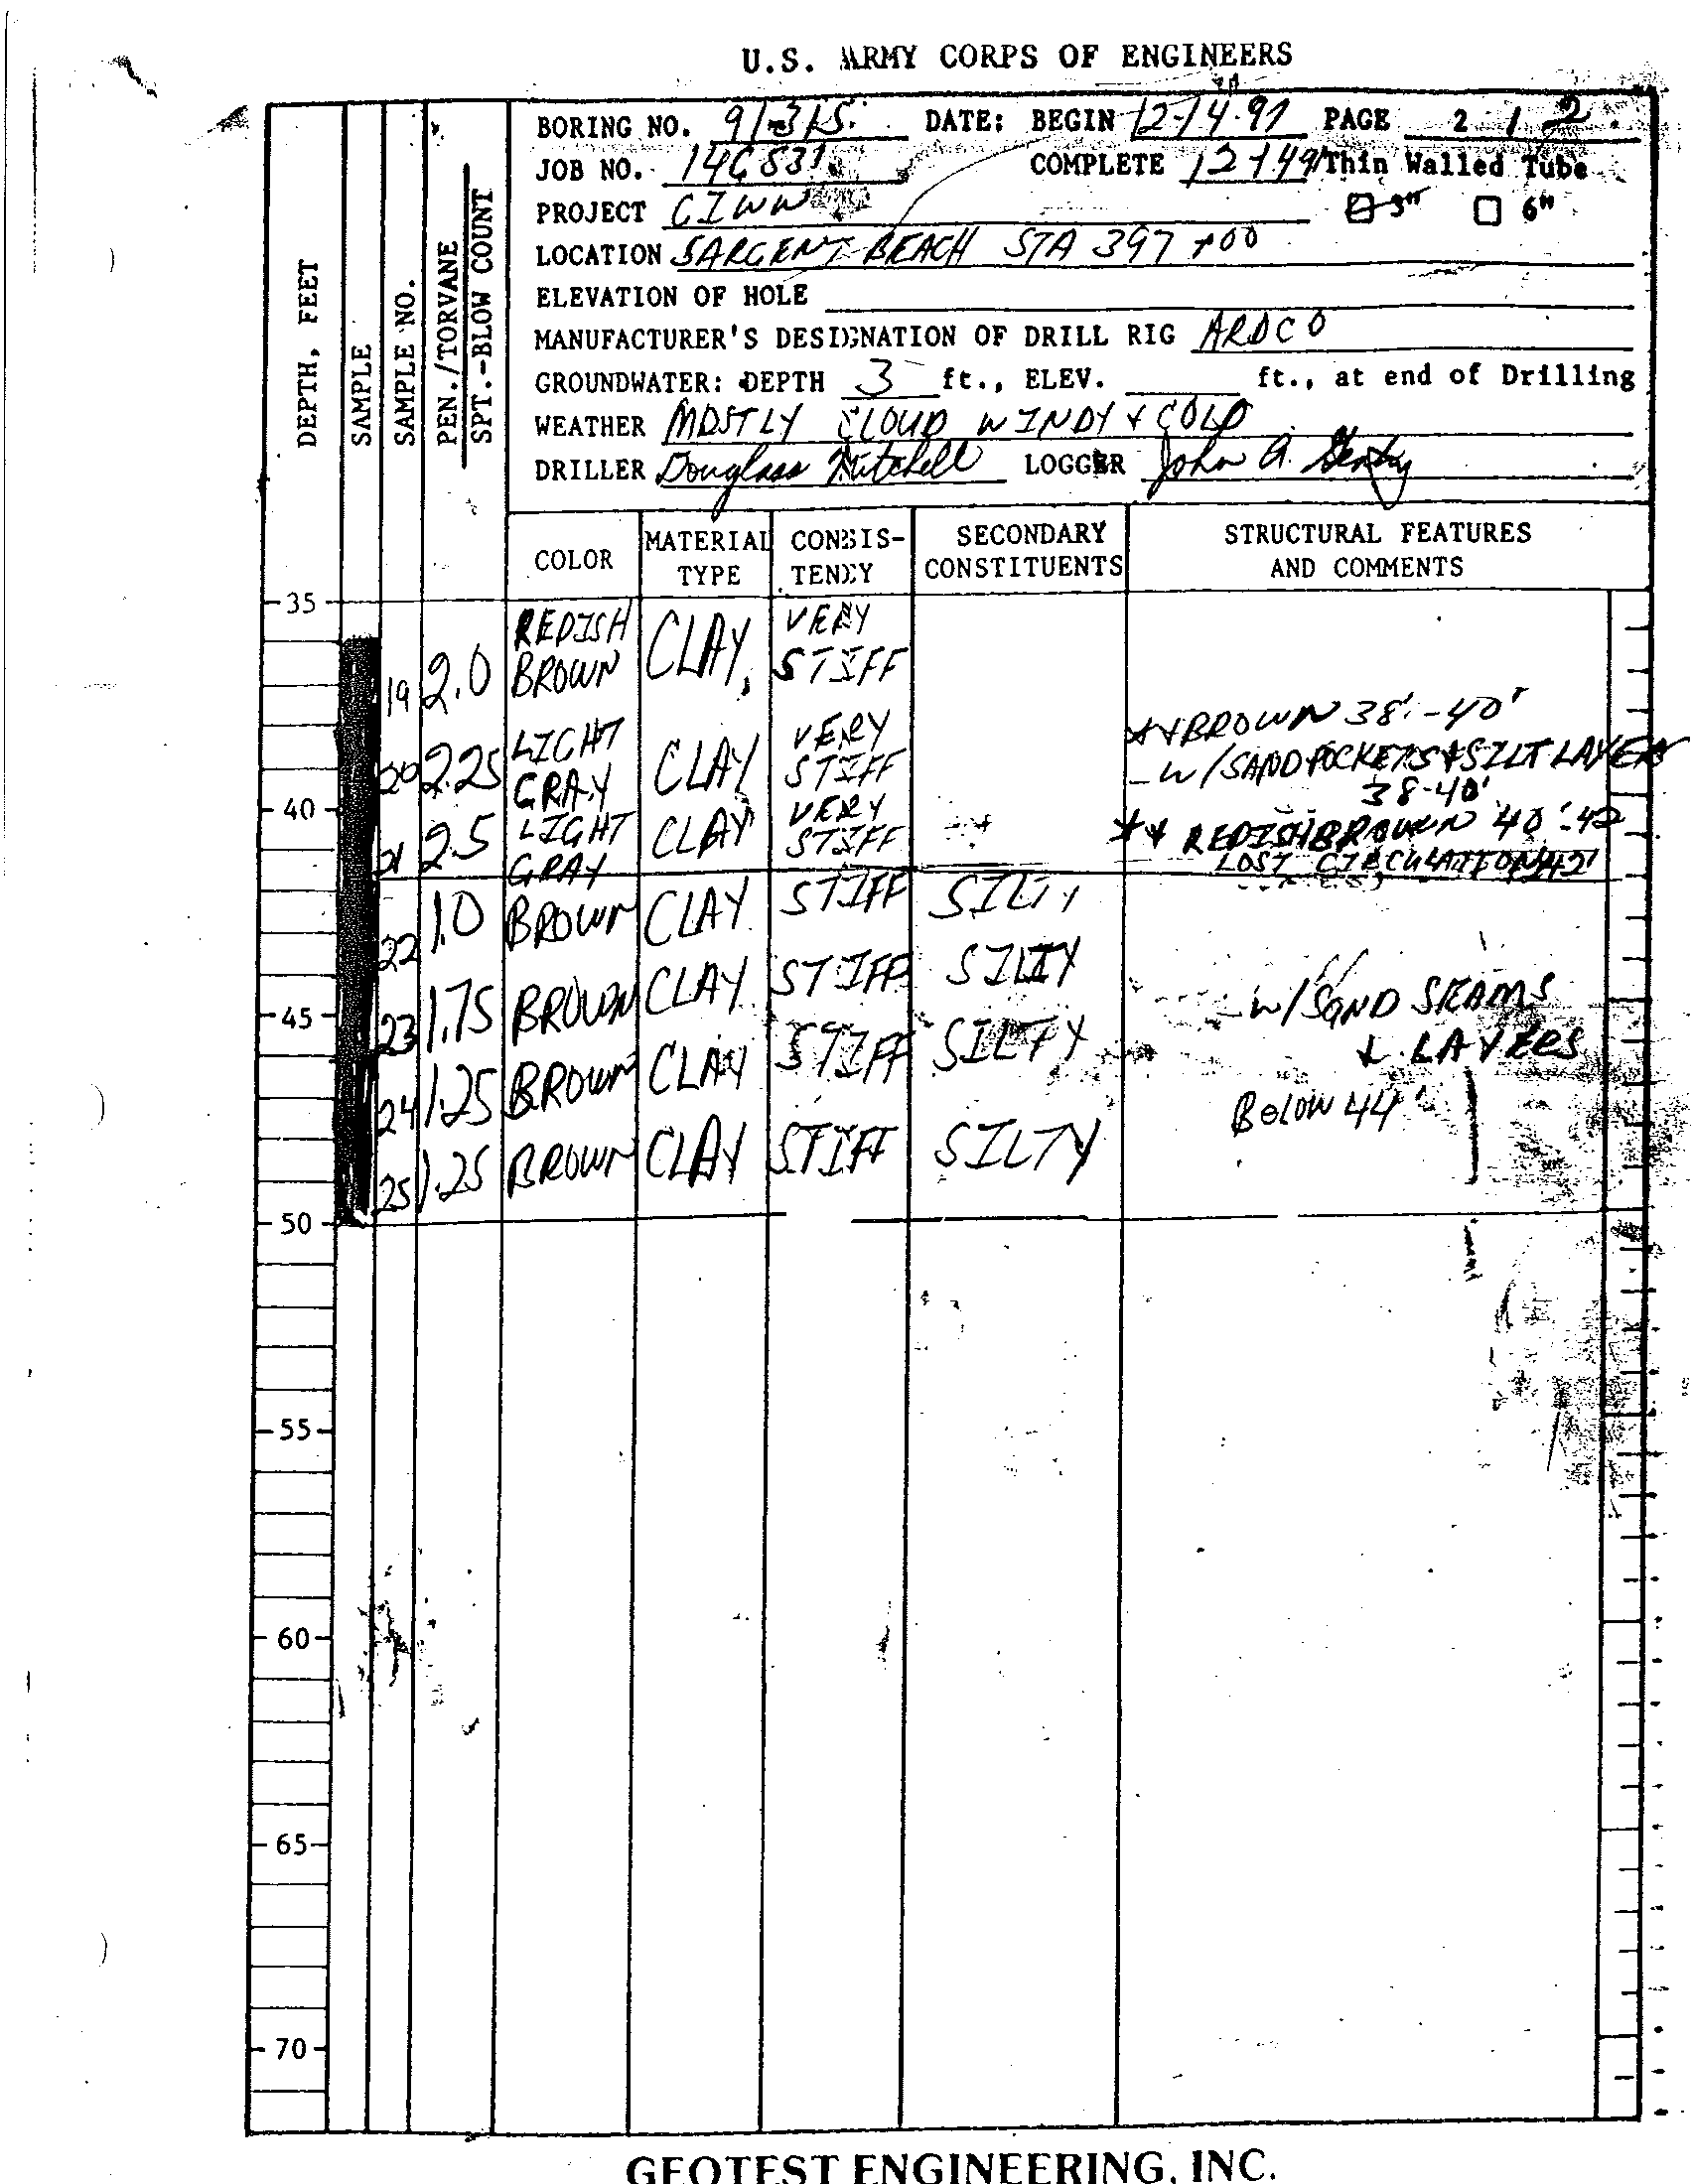 U.S. ARMY CORPS OF ENGINEERS
BORING NO. 91-315 DATE: BEGIN 12-14-91 PAGE 2 / 2
JOB NO. COMPLETE 12-14-91 Thin Walled Tube
PROJECT GIWW 3" 6"
LOCATION SARGENT BEACH STA 397+00
ELEVATION OF HOLE
MANUFACTURER'S DESIGNATION OF DRILL RIG ARDCO
GROUNDWATER: DEPTH 3 ft., ELEV. ft., at end of Drilling
WEATHER MOSTLY CLOUD WINDY & COLD
DRILLER Douglass Mitchell LOGGER John A.
DEPTH, FEET
SAMPLE
SAMPLE NO.
PEN./TORVANE
SPT.-BLOW COUNT
COLOR MATERIAL TYPE CONSIS-TENCY SECONDARY CONSTITUENTS STRUCTURAL FEATURES AND COMMENTS
35
19 2.0 REDISH BROWN CLAY, VERY STIFF
20 2.25 LIGHT GRAY CLAY VERY STIFF
**BROWN 38'-40'
-W/SAND POCKETS & SILT LAYERS
38-40'
40
21 2.5 LIGHT GRAY CLAY VERY STIFF
** REDISH BROWN 40'-42
LOST CIRCULATION 42'
22 1.0 BROWN CLAY STIFF SILTY
45
23 1.75 BROWN CLAY STIFF SILTY
w/SAND SEAMS
& LAYERS
24 1.25 BROWN CLAY STIFF SILTY
BELOW 44'
25 1.25 BROWN CLAY STIFF SILTY
50
55
60
65
70
GEOTEST ENGINEERING, INC.